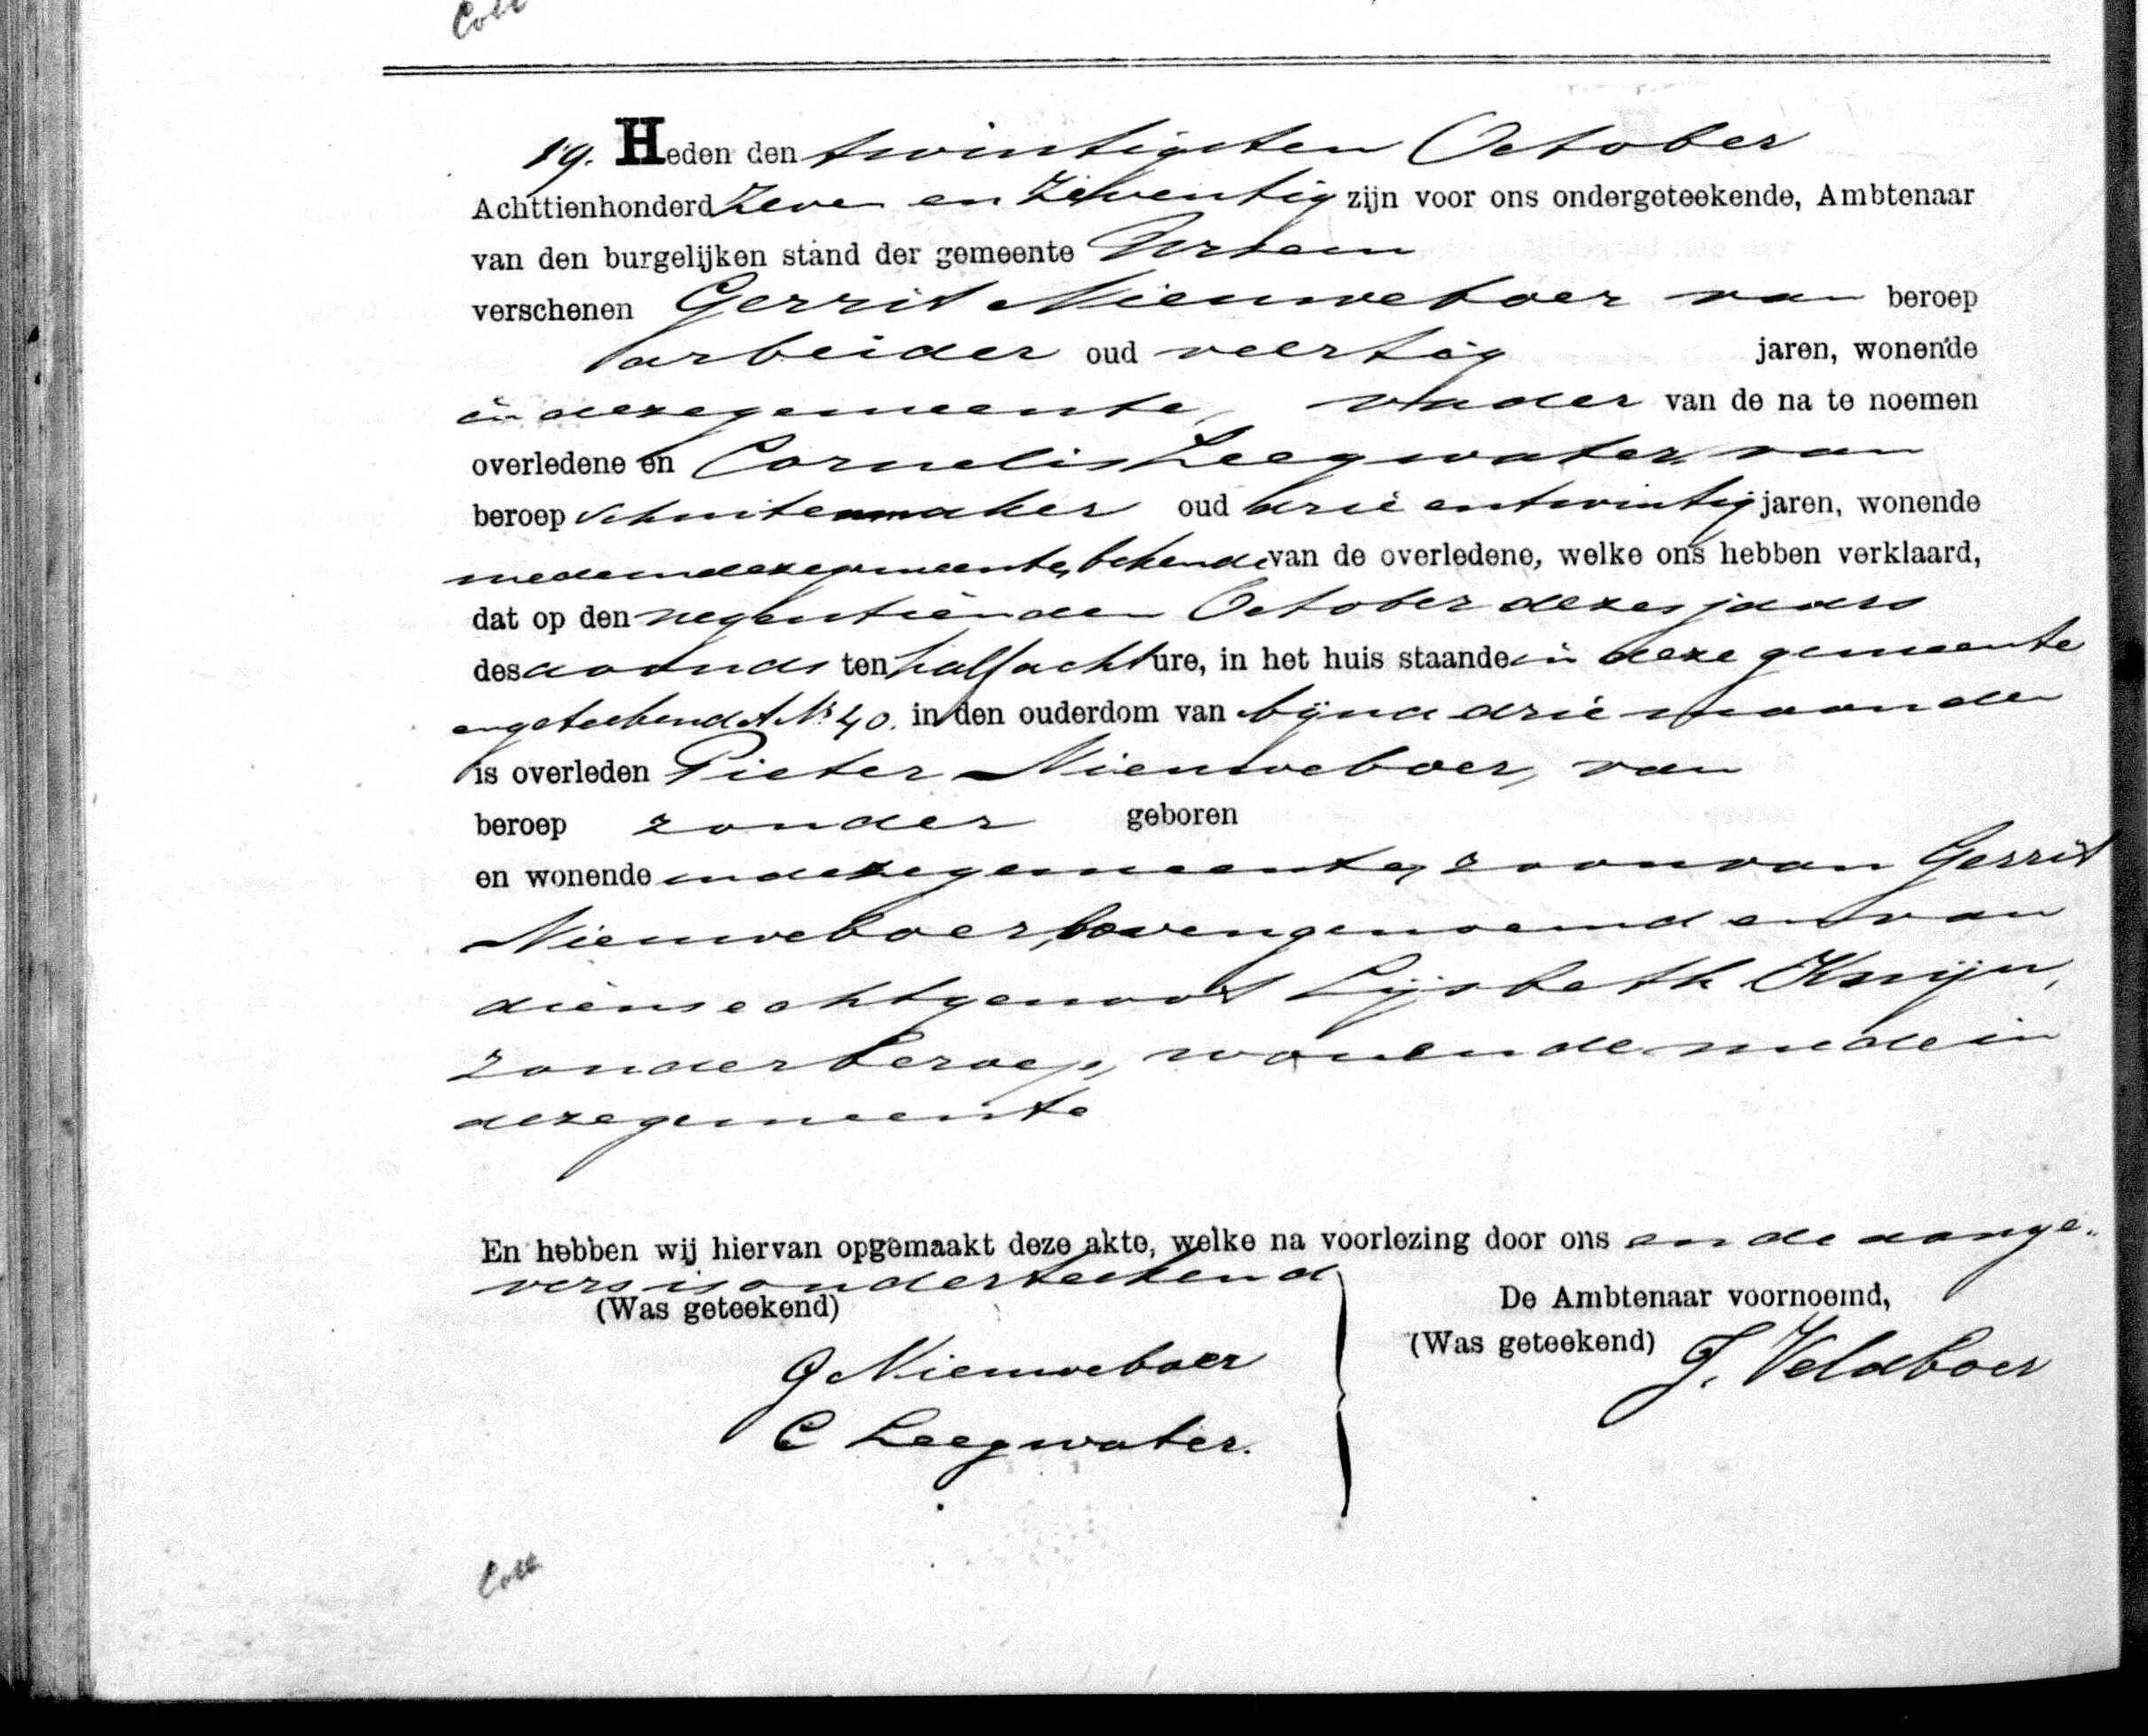 Coll
19. Heden den twintigsten October
Achttienhonderd Zeven en Zeventig zijn voor ons ondergeteekende, Ambtenaar
van den burgelijken stand der gemeente Ursem
verschenen Gerrit Nieuweboer van beroep
arbeider oud veertig jaren, wonende
in dezegemeente, vader van de na te noemen
overledene en Cornelis Leegwater, van
beroep schuitenmaker oud drie entwintig jaren, wonende
medeindezegemeente, bekende van de overledene, welke ons hebben verklaard,
dat op den negentienden October dezes jaars
des avonds ten half acht ure, in het huis staande in deze gemeente
en geteekend A No 40. in den ouderdom van bijna drie maanden
is overleden Pieter Nieuweboer, van
beroep zonder geboren
en wonende indezegemeente, zoon van Gerrit
Nieuweboer, bovengenoemd en van
diens echtgenoot Lijsbeth Knijn,
zonder beroep, wonende mede in
dezegemeente
En hebben wij hiervan opgemaakt deze akte, welke na voorlezing door ons en de aange-
vers is onderteekend
(Was geteekend)
De Ambtenaar voornoemd,
(Was geteekend) J. Veldboer
G Nieuweboer
C Leegwater.
Coll